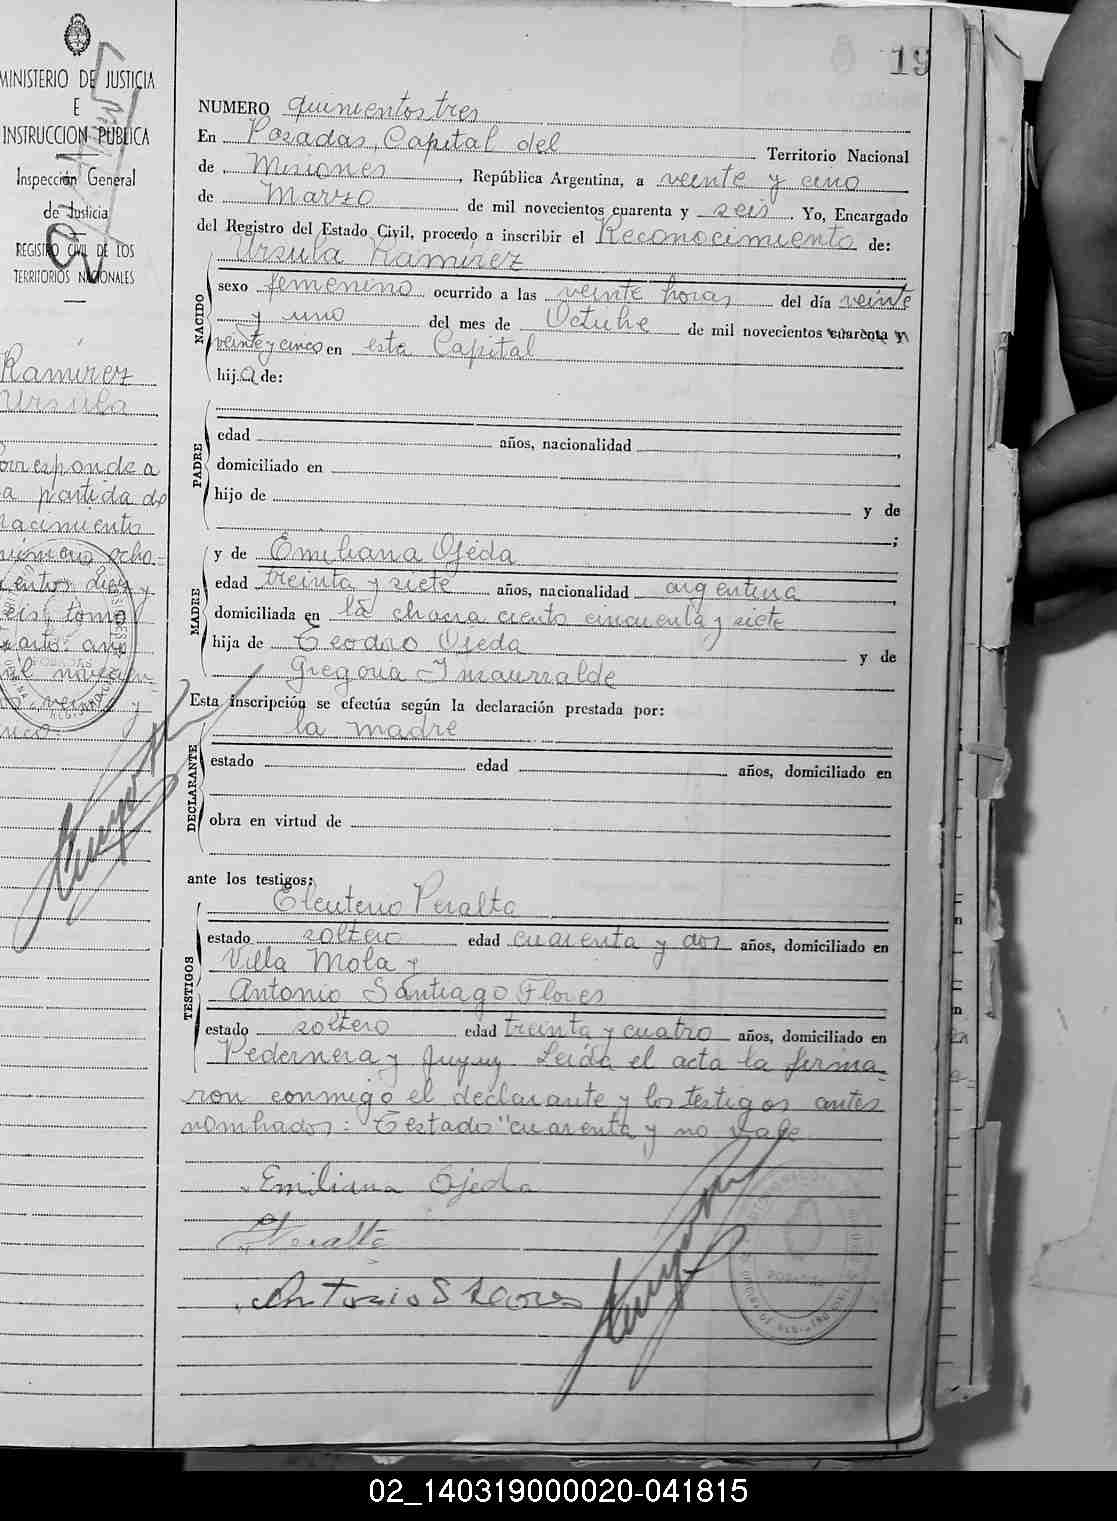 MINISTERIO DE JUSTICIA
E
INSTRUCCION PUBLICA
Inspección General
de Justicia
REGISTRO CIVIL DE LOS
TERRITORIOS NACIONALES
Ramirez
Ursula
Corresponde a
la partida de
nacimiento
número ocho-
cientos diez y
seis, tomo
cuarto. año
mil novecien-
tos veinte y
cinco.
19
NUMERO quinientos tres
En Posadas, Capital del Territorio Nacional
de Misiones, República Argentina, a veinte y cinco
de Marzo de mil novecientos cuarenta y seis. Yo, Encargado
del Registro del Estado Civil, procedo a inscribir el Reconocimiento de:
Ursula Ramirez
NACIDO
sexo femenino ocurrido a las veinte horas del día veinte
y uno del mes de Octubre de mil novecientos cuarenta y
veinte y cinco en esta Capital
hija de:
PADRE
edad años, nacionalidad ,
domiciliado en
hijo de y de
;
y de Emiliana Ojeda
MADRE
edad treinta y siete años, nacionalidad argentina ,
domiciliada en la chacra ciento cincuenta y siete
hija de Teodoro Ojeda y de
Gregoria Insaurralde
Esta inscripción se efectúa según la declaración prestada por:
la madre
DECLARANTE
estado edad años, domiciliado en
obra en virtud de
ante los testigos:
Eleuterio Peralta
TESTIGOS
estado soltero edad cuarenta y dos años, domiciliado en
Villa Mola y
Antonio Santiago Flores
estado soltero edad treinta y cuatro años, domiciliado en
Pedernera y Jujuy. Leida el acta la firma-
ron conmigo el declarante y los testigos antes
nombrados: Testado "cuarenta y no vale
Emiliana Ojeda
Peralta
Antonio S Flores
02_140319000020-041815